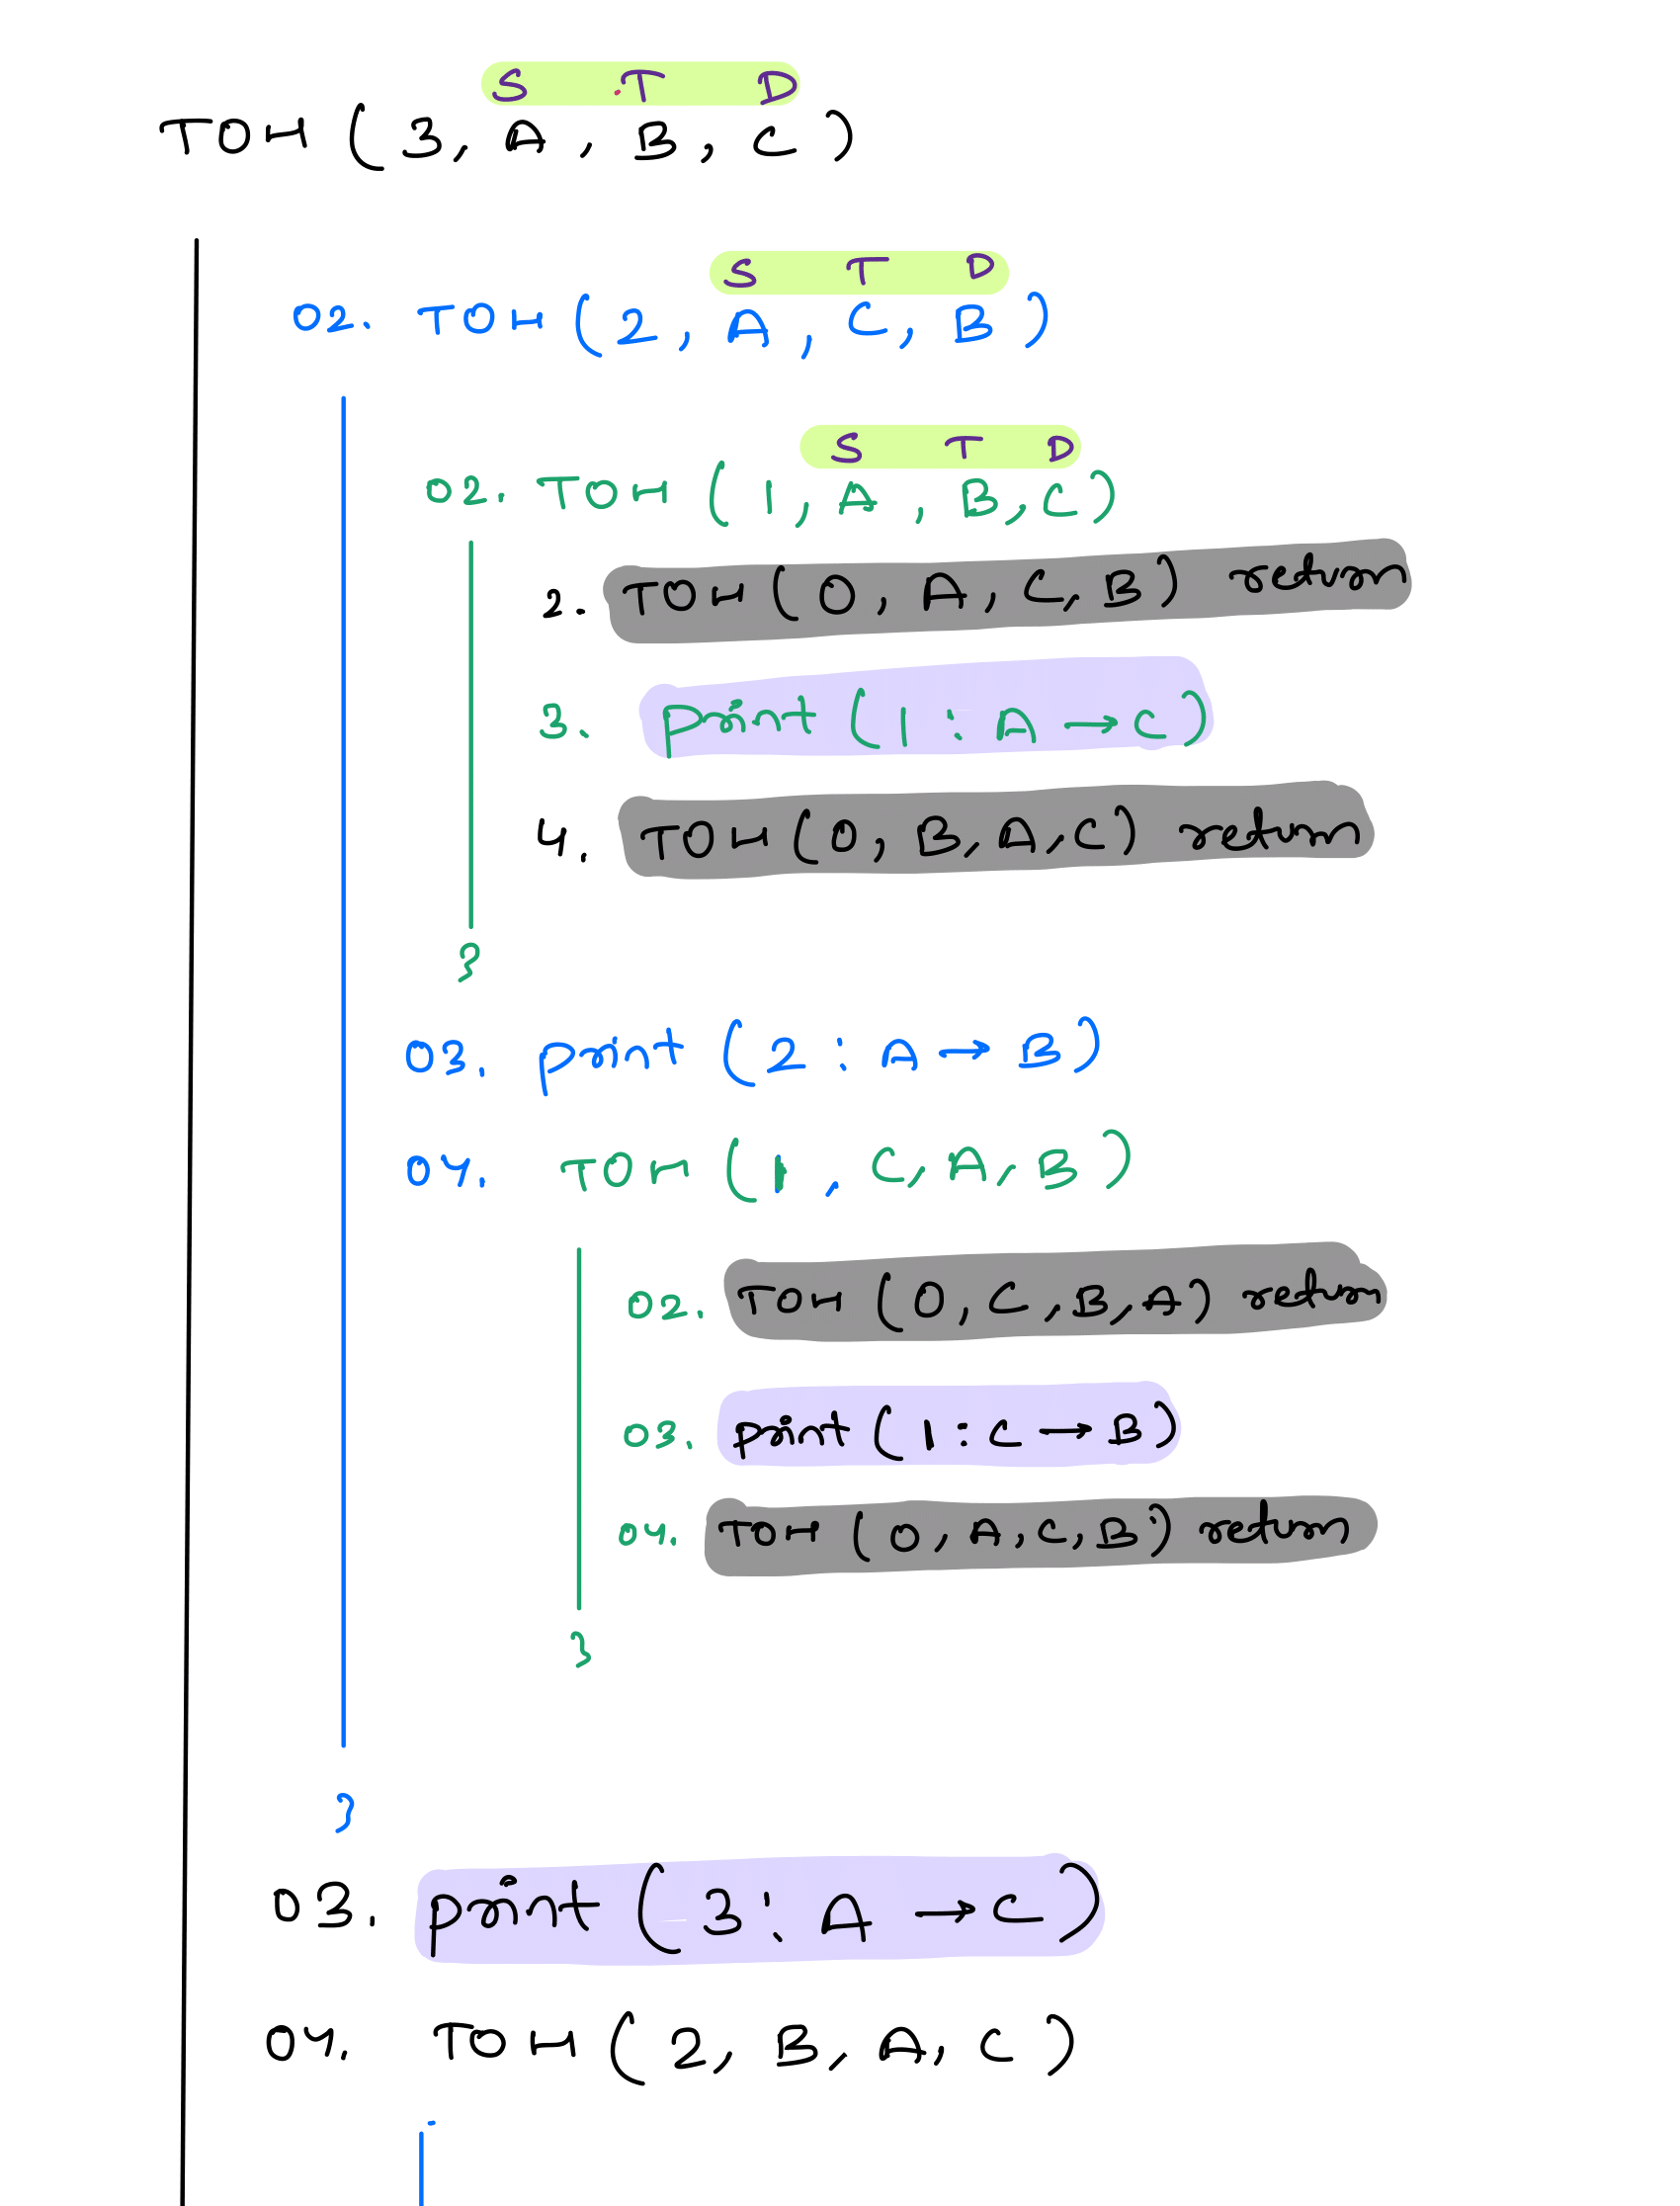 S T D
TOH (3, A, B, C)
S T D
02. TOH (2, A, C, B)
S T D
02. TOH (1, A, B, C)
2. TOH (0, A, C, B) return
3. print (1 : A → C)
4. TOH (0, B, A, C) return
}
03. print (2 : A → B)
04. TOH (1, C, A, B)
02. TOH (0, C, B, A) return
03. print (1 : C → B)
04. TOH (0, A, C, B) return
}
}
03. print (3 : A → C)
04. TOH (2, B, A, C)